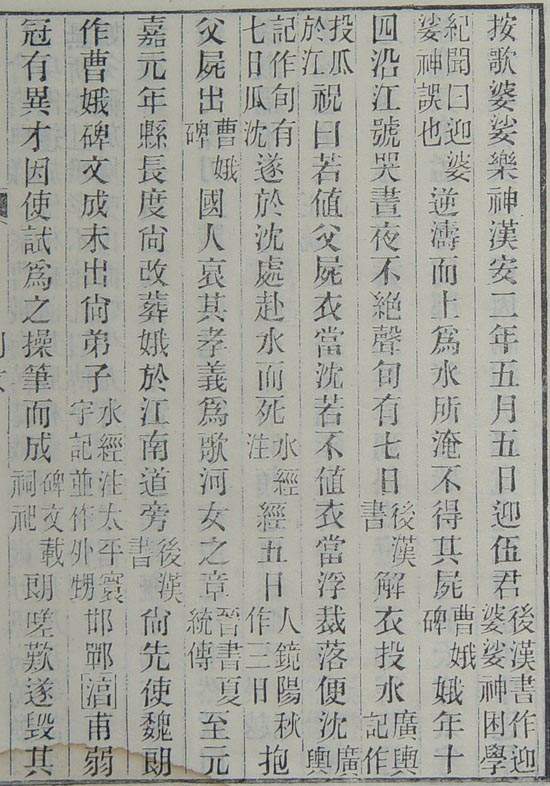 按歌婆娑樂神漢安二年五月五日迎伍君後漢書作迎婆娑神困學
紀聞曰迎婆娑神誤也逆濤而上爲水所淹不得其屍曹娥碑娥年十
四沿江號哭晝夜不絕聲旬有七日後漢書解衣投水廣輿記作
投瓜於江祝曰若值父屍衣當沈若不值衣當浮裁落便沈廣輿
記作旬有七日瓜沈遂於沈處赴水而死水經注經五日人鏡陽秋作三日抱
父屍出曹娥碑國人哀其孝義爲歌河女之章晉書夏統傳至元
嘉元年縣長度尙改葬娥於江南道旁後漢書尙先使魏朗
作曹娥碑文成未出尙弟子水經注太平寰宇記並作外甥邯鄲湻甫弱
冠有異才因使試爲之操筆而成碑文載祠祀朗嗟歎遂毀其